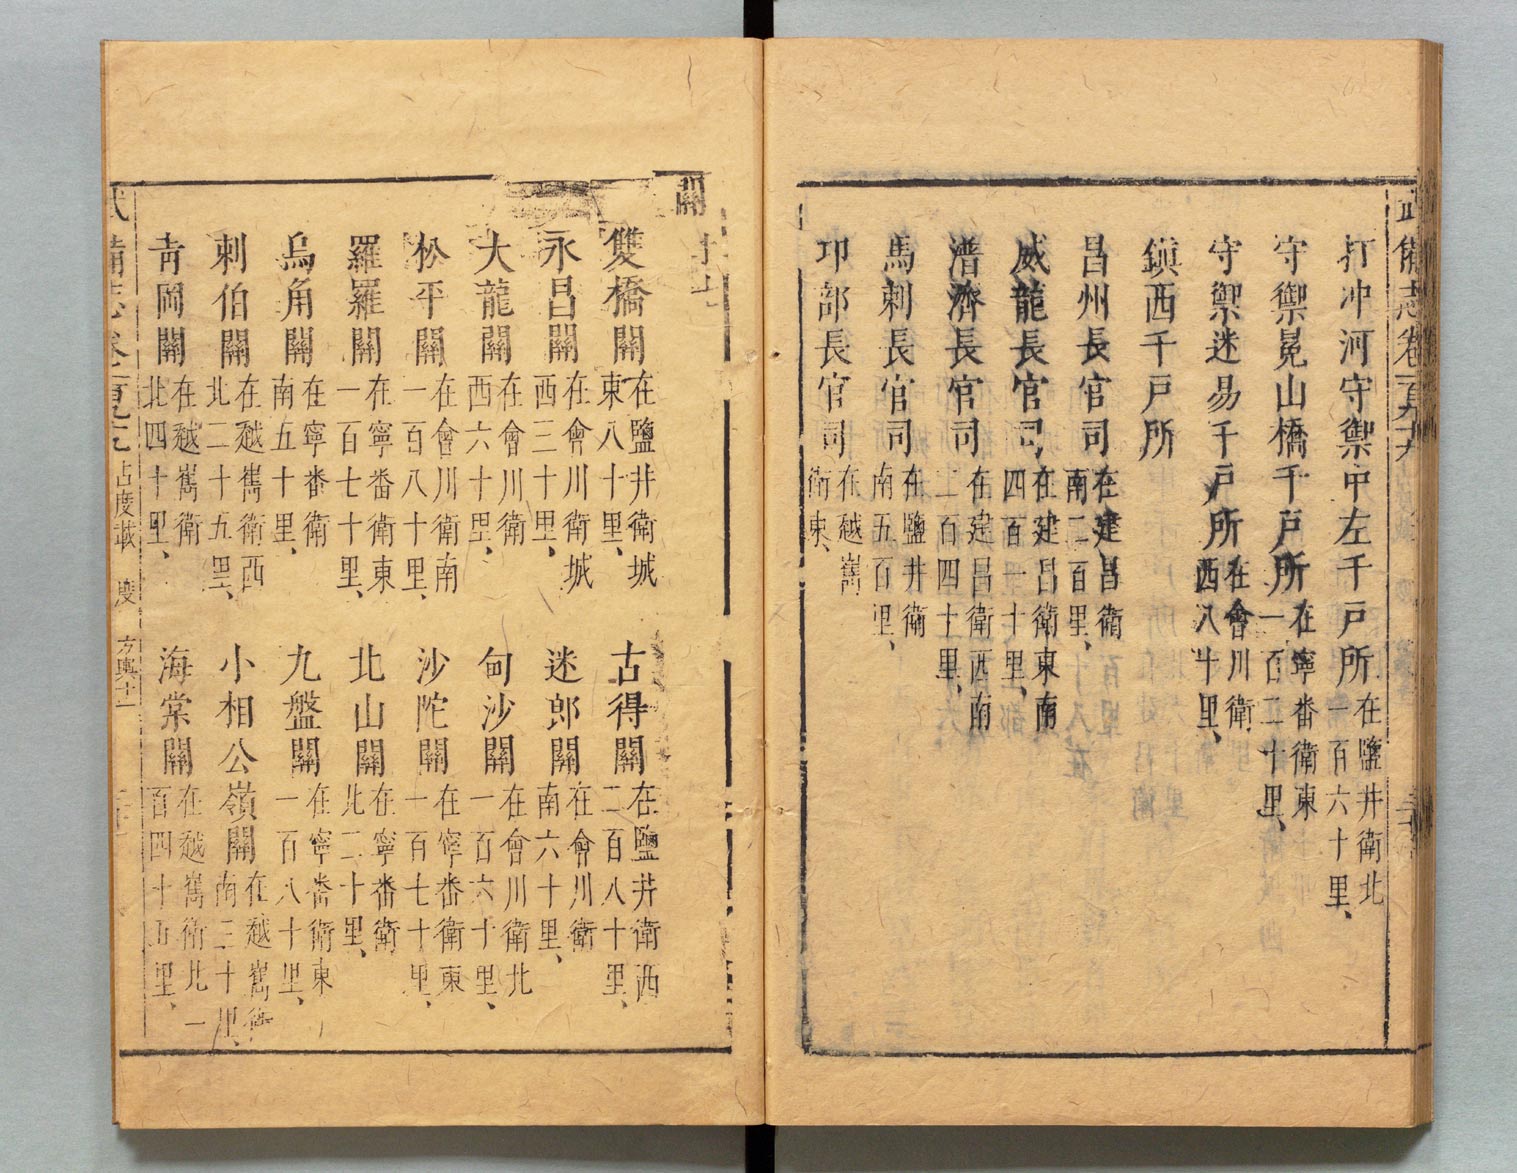 打冲河守禦中左千戸所在鹽井衛北一百六十里、
守禦冕山橋千戸所在寧番衛東一百二十里、
守禦迷易千戸所在會川衛西八十里、
鎭西千戸所
昌州長官司在建昌衛南二百里、
威龍長官司在建昌衛東南四百一十里、
普濟長官司在建昌衛西南二百四十里、
馬剌長官司在鹽井衛南五百里、
邛部長官司在越嶲衛東、
關
雙橋關在鹽井衛城東八十里、
古得關在鹽井衛西二百八十里、
永昌關在會川衛城西三十里、
迷郎關在會川衛南六十里、
大龍關在會川衛西六十里、
甸沙關在會川衛北一百六十里、
松平關在會川衛南一百八十里、
沙陀關在寧番衛東一百七十里、
羅羅關在寧番衛東一百七十里、
北山關在寧番衛北二十里、
烏角關在寧番衛南五十里、
九盤關在寧番衛東一百八十里、
剌伯關在越嶲衛西北二十五里、
小相公嶺關在越嶲衛南三十里、
靑岡關在越嶲衛北四十里、
海棠關在越嶲衛北一百四十五里、
武備志卷一百九十九
占度載 度
方輿十一